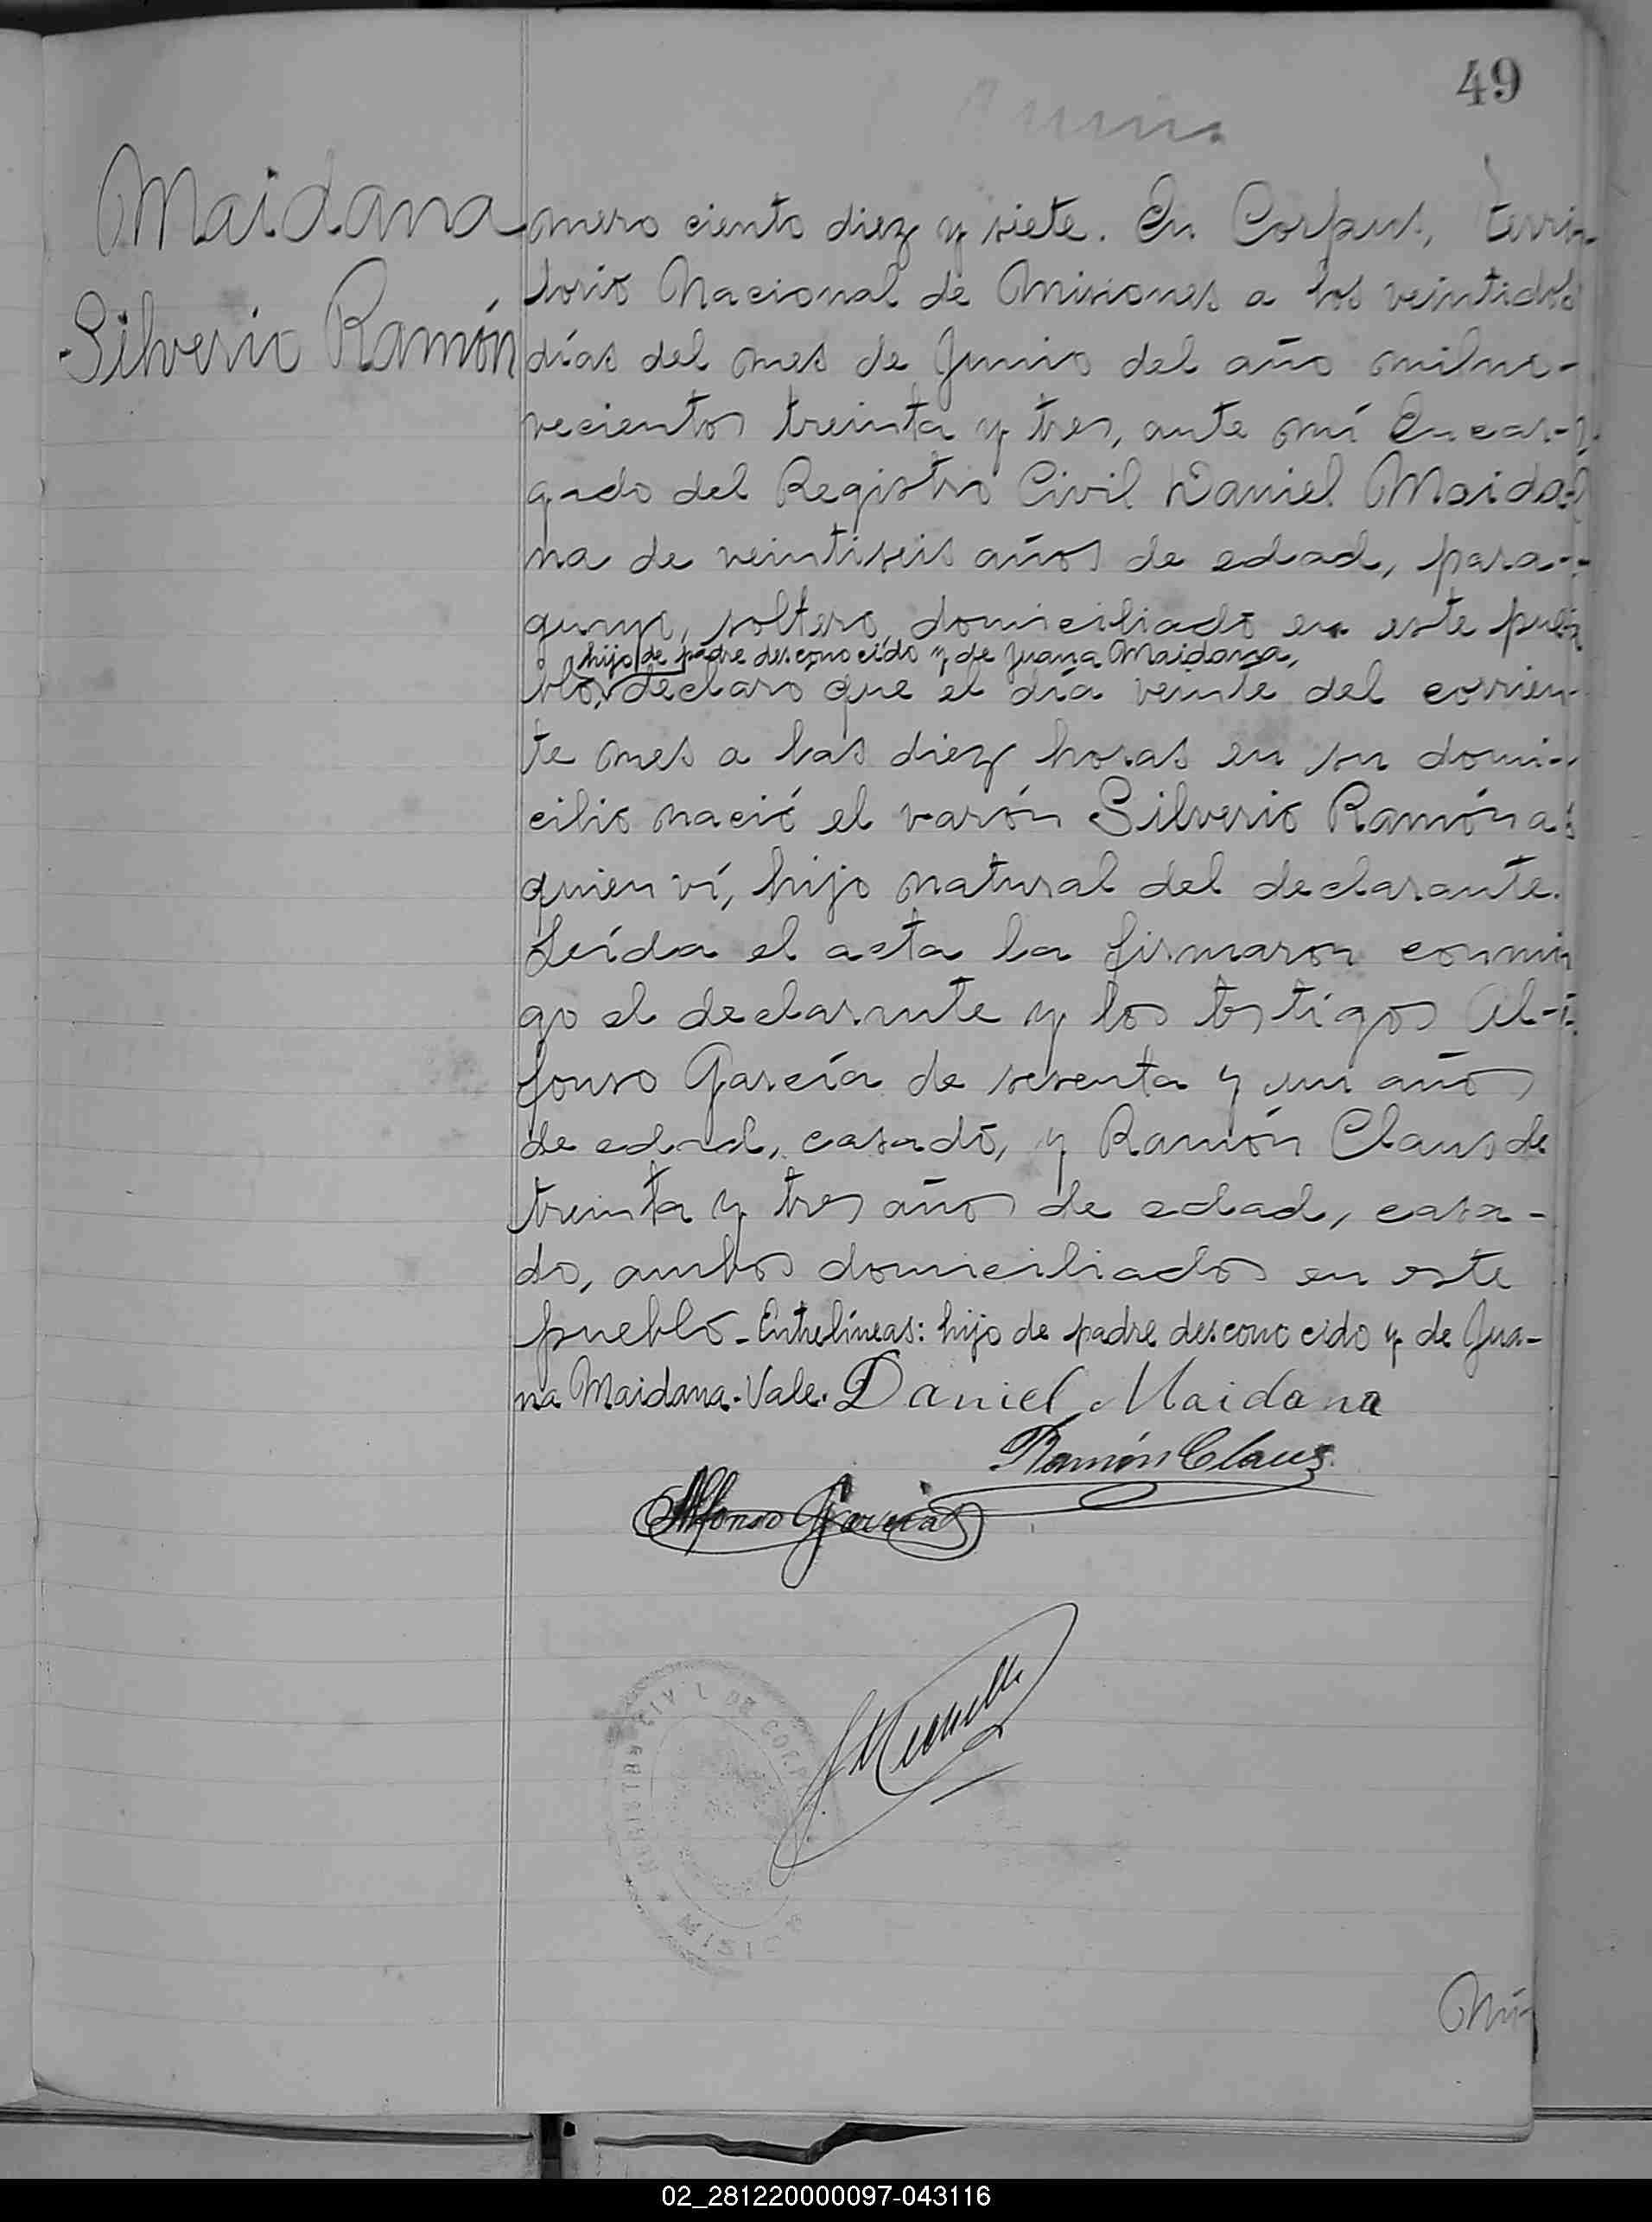 49
Maidana
Silverio Ramón
mero ciento diez y siete. En Corpus, terri-
torio Nacional de Misiones a los veintidós
días del mes de Junio del año milno-
vecientos treinta y tres, ante mí Encar-
gado del Registro Civil Daniel Maida-
na de veintiseis años de edad, para-
guayo, soltero, domiciliado en este pue-
hijo de padre desconocido y de Juana Maidana,
blo, declaro que el día veinte del corrien-
te mes a las diez horas en su domi-
cilio nació el varón Silverio Ramón a
quien ví, hijo natural del declarante.
Leída el acta la firmaron conmi
go el declarante y los testigos Al-
fonso García de sesenta y un años
de edad, casado, y Ramón Claus de
treinta y tres años de edad, casa-
do, ambos domiciliados en este
pueblo. Entrelíneas: hijo de padre desconocido y de Jua-
na Maidana. Vale. Daniel Maidana
Ramón Claus
Alfonso Garcia
CIVIL DE CORP
MISIO
Nú-
02_281220000097-043116